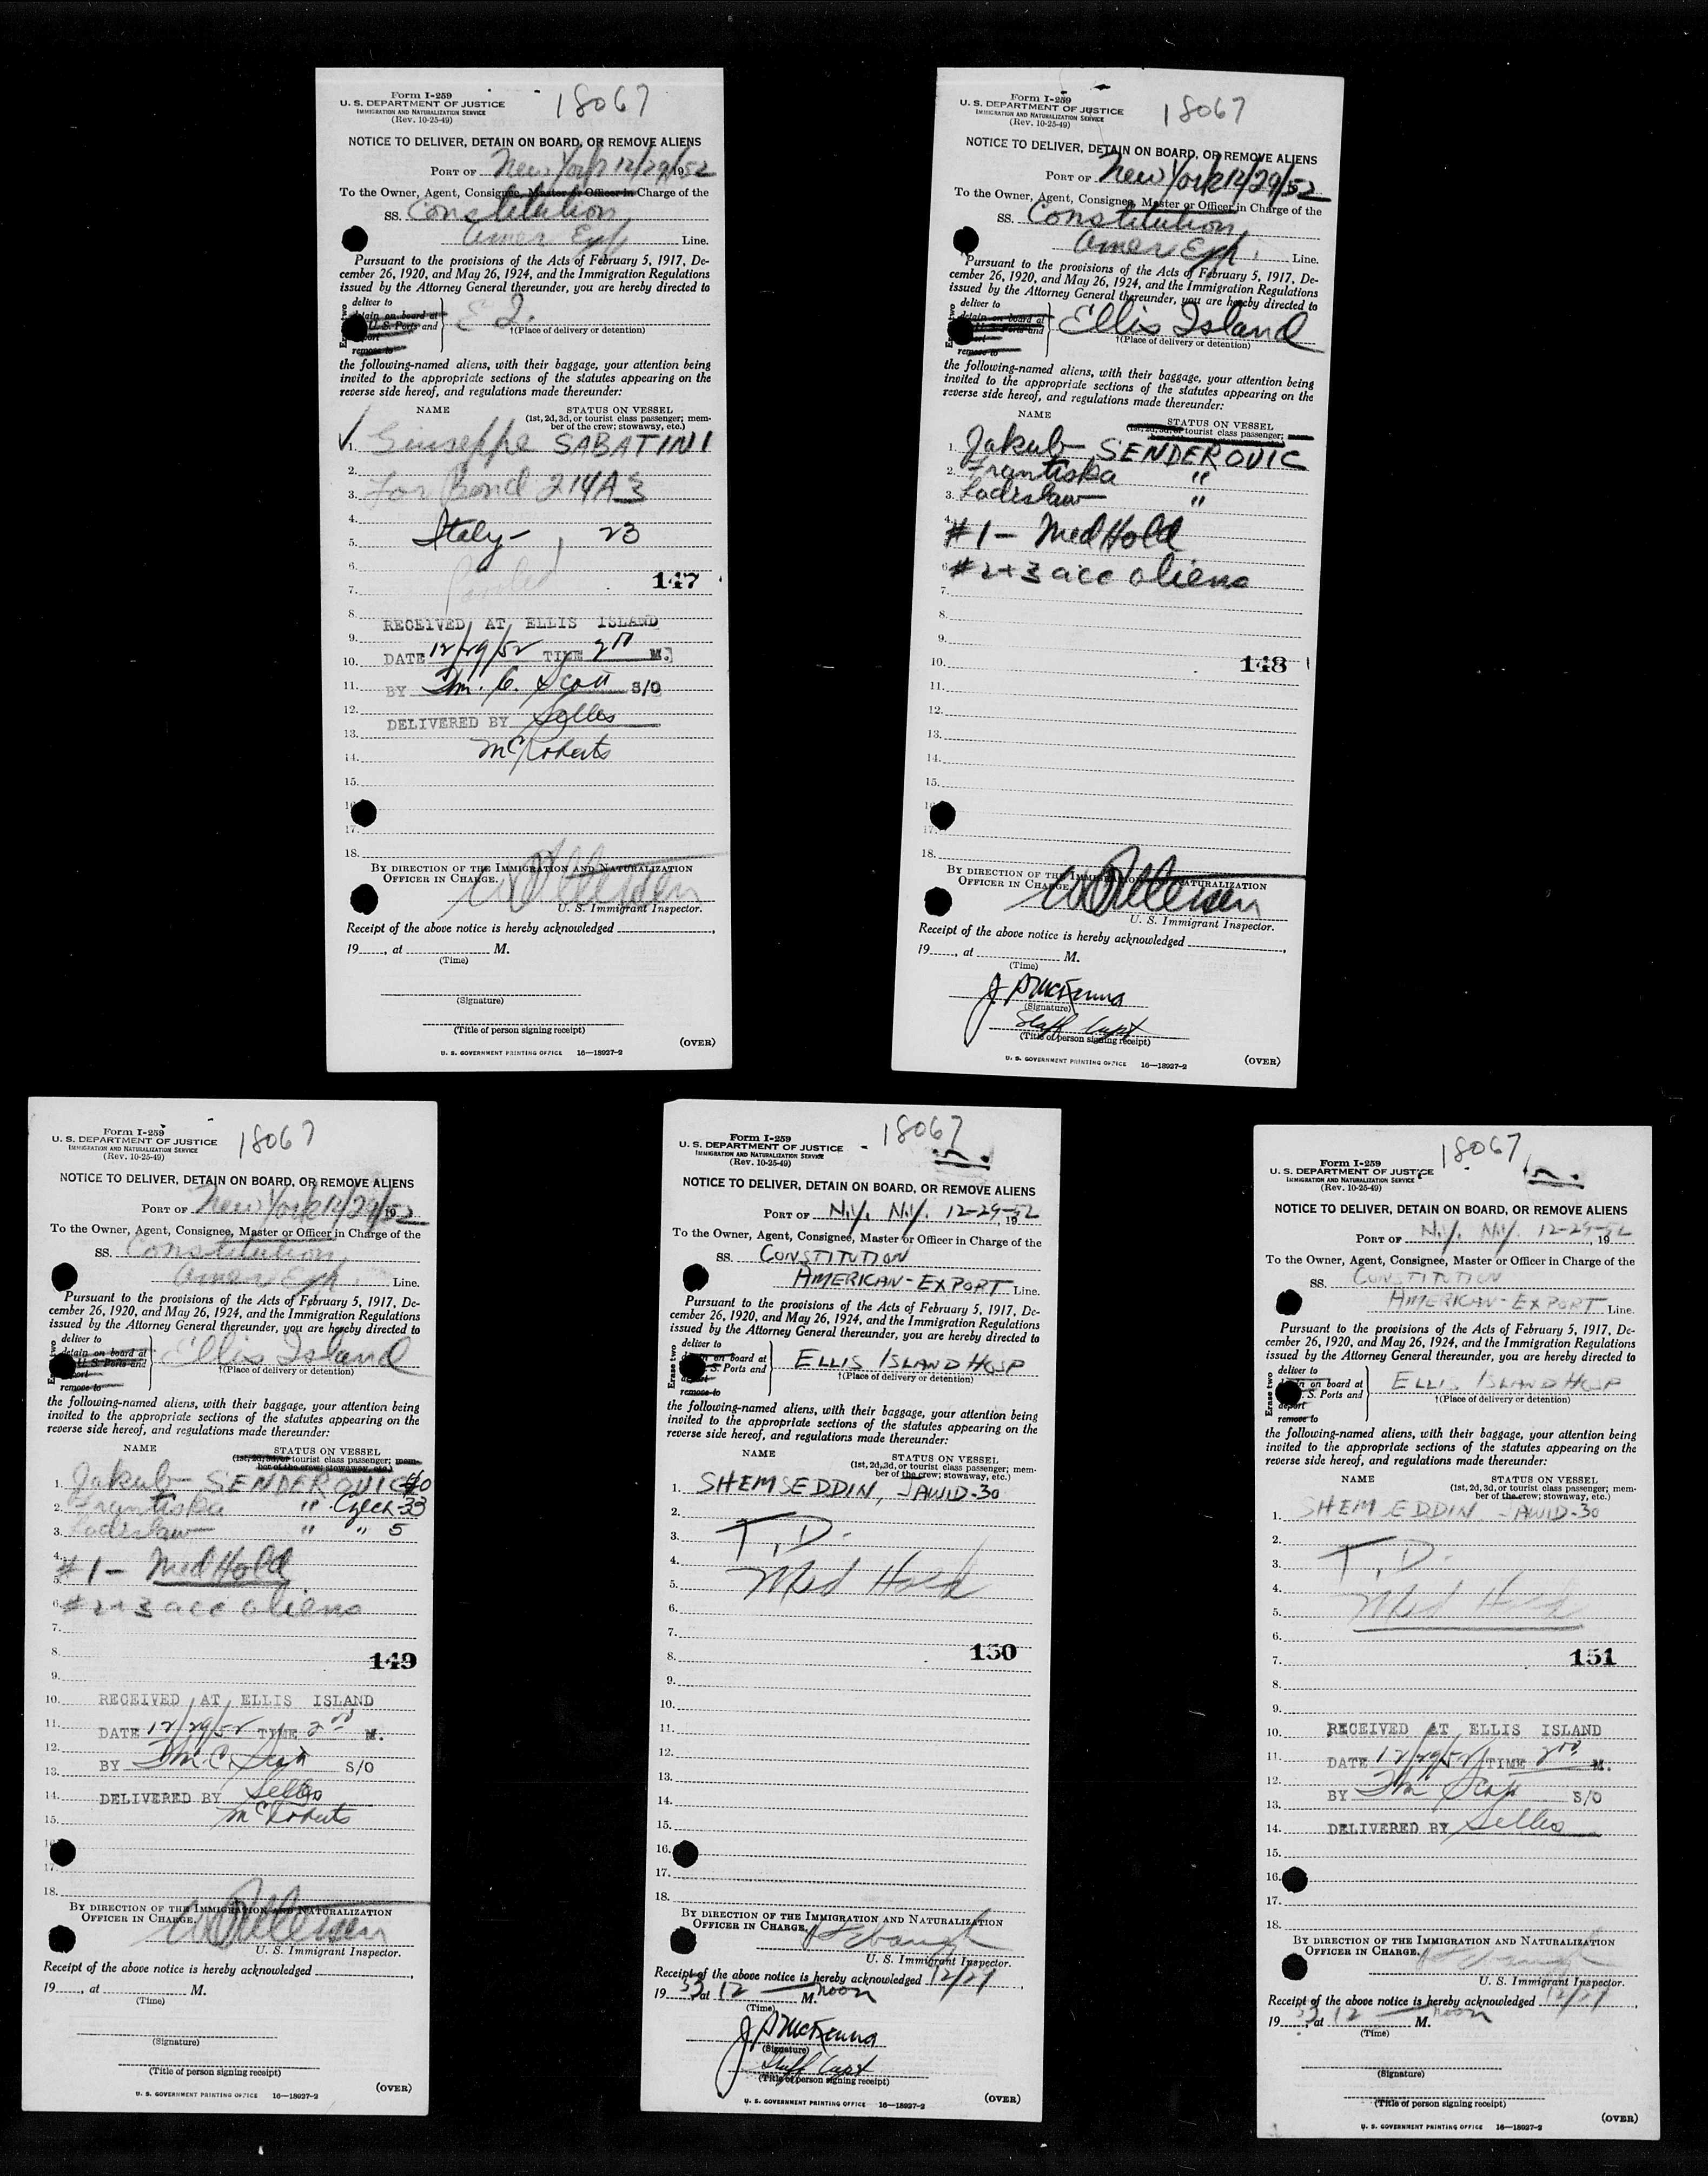 Form I-259
U. S. DEPARTMENT OF JUSTICE
IMMIGRATION AND NATURALIZATION SERVICE
(Rev. 10-25-49)
18067
NOTICE TO DELIVER, DETAIN ON BOARD, OR REMOVE ALIENS
PORT OF New York 12/29/1952
To the Owner, Agent, Consignee, Master or Officer in Charge of the
SS. Constitution
Amer Exp. Line.
Pursuant to the provisions of the Acts of February 5, 1917, De-
cember 26, 1920, and May 26, 1924, and the Immigration Regulations
issued by the Attorney General thereunder, you are hereby directed to
deliver to
detain on board at
U. S. Ports and
remove to
E I.
†(Place of delivery or detention)
the following-named aliens, with their baggage, your attention being
invited to the appropriate sections of the statutes appearing on the
reverse side hereof, and regulations made thereunder:
NAME STATUS ON VESSEL
(1st, 2d, 3d, or tourist class passenger; mem-
ber of the crew; stowaway, etc.)
1. Giuseppe SABATINI
2.
3. for Bond 214A3
4.
5. Italy - 23
6.
7. Paroled 147
8.
RECEIVED AT ELLIS ISLAND
9.
10. DATE 12/29/52 TIME 2 M.
11. BY Thm. C. Scott S/O
12.
13. DELIVERED BY Selles
14. McRoberts
15.
16.
17.
18.
BY DIRECTION OF THE IMMIGRATION AND NATURALIZATION
OFFICER IN CHARGE.
U. S. Immigrant Inspector.
Receipt of the above notice is hereby acknowledged
19 , at M.
(Time)
(Signature)
(Title of person signing receipt)
U. S. GOVERNMENT PRINTING OFFICE 16—18927-2
(OVER)
Form I-259
U. S. DEPARTMENT OF JUSTICE
IMMIGRATION AND NATURALIZATION SERVICE
(Rev. 10-25-49)
18067
NOTICE TO DELIVER, DETAIN ON BOARD, OR REMOVE ALIENS
PORT OF New York 12/29/52
To the Owner, Agent, Consignee, Master or Officer in Charge of the
SS. Constitution
Amer Exp. Line.
Pursuant to the provisions of the Acts of February 5, 1917, De-
cember 26, 1920, and May 26, 1924, and the Immigration Regulations
issued by the Attorney General thereunder, you are hereby directed to
deliver to
detain on board at
U. S. Ports and
remove to
Ellis Island
†(Place of delivery or detention)
the following-named aliens, with their baggage, your attention being
invited to the appropriate sections of the statutes appearing on the
reverse side hereof, and regulations made thereunder:
NAME
STATUS ON VESSEL
(1st, 2d, 3d, or tourist class passenger;
1. Jakub SENDEROVIC
2. Frantiska "
3. Ladislaw "
4.
#1 - Med Hold
6. #2+3 acc aliens
7.
8.
9.
10. 148
11.
12.
13.
14.
15.
16.
17.
18.
BY DIRECTION OF THE IMMIGRATION AND NATURALIZATION
OFFICER IN CHARGE.
U. S. Immigrant Inspector.
Receipt of the above notice is hereby acknowledged
19 , at M.
(Time)
J. McKenna
(Signature)
Staff Capt
(Title of person signing receipt)
U. S. GOVERNMENT PRINTING OFFICE 16—18927-2
(OVER)
Form I-259
U. S. DEPARTMENT OF JUSTICE
IMMIGRATION AND NATURALIZATION SERVICE
(Rev. 10-25-49)
18067
NOTICE TO DELIVER, DETAIN ON BOARD, OR REMOVE ALIENS
PORT OF New York 12/29/1952
To the Owner, Agent, Consignee, Master or Officer in Charge of the
SS. Constitution
Amer Exp. Line.
Pursuant to the provisions of the Acts of February 5, 1917, De-
cember 26, 1920, and May 26, 1924, and the Immigration Regulations
issued by the Attorney General thereunder, you are hereby directed to
deliver to
detain on board at
U. S. Ports and
remove to
Ellis Island
†(Place of delivery or detention)
the following-named aliens, with their baggage, your attention being
invited to the appropriate sections of the statutes appearing on the
reverse side hereof, and regulations made thereunder:
NAME STATUS ON VESSEL
(1st, 2d, 3d, or tourist class passenger; mem-
ber of the crew; stowaway, etc.)
1. Jakub SENDEROVIC 40
2. Frantiska " Czech 33
3. Ladislaw " " 5
4.
#1 - Med Hold
6. #2+3 acc aliens
7.
8. 149
9.
10. RECEIVED AT ELLIS ISLAND
11. DATE 12/29/52 TIME 2 M.
12.
13. BY Thm. C. Scott S/O
14. DELIVERED BY Selles
15. McRoberts
16.
17.
18.
BY DIRECTION OF THE IMMIGRATION AND NATURALIZATION
OFFICER IN CHARGE.
U. S. Immigrant Inspector.
Receipt of the above notice is hereby acknowledged
19 , at M.
(Time)
(Signature)
(Title of person signing receipt)
U. S. GOVERNMENT PRINTING OFFICE 16—18927-2
(OVER)
Form I-259
U. S. DEPARTMENT OF JUSTICE
IMMIGRATION AND NATURALIZATION SERVICE
(Rev. 10-25-49)
18067
NOTICE TO DELIVER, DETAIN ON BOARD, OR REMOVE ALIENS
PORT OF N.Y. N.Y. 12-29-52
To the Owner, Agent, Consignee, Master or Officer in Charge of the
SS. CONSTITUTION
AMERICAN-EXPORT Line.
Pursuant to the provisions of the Acts of February 5, 1917, De-
cember 26, 1920, and May 26, 1924, and the Immigration Regulations
issued by the Attorney General thereunder, you are hereby directed to
Erase two
deliver to
on board at
S. Ports and
deport
remove to
ELLIS ISLAND HOSP
†(Place of delivery or detention)
the following-named aliens, with their baggage, your attention being
invited to the appropriate sections of the statutes appearing on the
reverse side hereof, and regulations made thereunder:
NAME STATUS ON VESSEL
(1st, 2d, 3d, or tourist class passenger; mem-
ber of the crew; stowaway, etc.)
1. SHEMSEDDIN, JAWID-30
2.
3. T.D.
4.
5. Med Hold
6.
7.
8. 150
9.
10.
11.
12.
13.
14.
15.
16.
17.
18.
BY DIRECTION OF THE IMMIGRATION AND NATURALIZATION
OFFICER IN CHARGE.
U. S. Immigrant Inspector.
Receipt of the above notice is hereby acknowledged 12/29
19 52, at 12 — M. noon
(Time)
J. McKenna
(Signature)
Staff Capt
(Title of person signing receipt)
U. S. GOVERNMENT PRINTING OFFICE 16—18927-2
(OVER)
Form I-259
U. S. DEPARTMENT OF JUSTICE
IMMIGRATION AND NATURALIZATION SERVICE
(Rev. 10-25-49)
18067
NOTICE TO DELIVER, DETAIN ON BOARD, OR REMOVE ALIENS
PORT OF N.Y. N.Y. 12-29-, 1952
To the Owner, Agent, Consignee, Master or Officer in Charge of the
SS. CONSTITUTION
AMERICAN-EXPORT Line.
Pursuant to the provisions of the Acts of February 5, 1917, De-
cember 26, 1920, and May 26, 1924, and the Immigration Regulations
issued by the Attorney General thereunder, you are hereby directed to
Erase two
deliver to
on board at
S. Ports and
deport
remove to
ELLIS ISLAND HOSP
†(Place of delivery or detention)
the following-named aliens, with their baggage, your attention being
invited to the appropriate sections of the statutes appearing on the
reverse side hereof, and regulations made thereunder:
NAME STATUS ON VESSEL
(1st, 2d, 3d, or tourist class passenger; mem-
ber of the crew; stowaway, etc.)
1. SHEMSEDDIN - JAWID-30
2.
3. T.D.
4.
5. Med Hold
6.
7. 151
8.
9.
10. RECEIVED AT ELLIS ISLAND
11. DATE 12/29/52 TIME 2 M.
12.
13. BY Thm Scott S/O
14. DELIVERED BY Selles
15.
16.
17.
18.
BY DIRECTION OF THE IMMIGRATION AND NATURALIZATION
OFFICER IN CHARGE.
U. S. Immigrant Inspector.
Receipt of the above notice is hereby acknowledged 12/29
19 52, at 12 — M. noon
(Time)
(Signature)
(Title of person signing receipt)
U. S. GOVERNMENT PRINTING OFFICE 16—18927-2
(OVER)